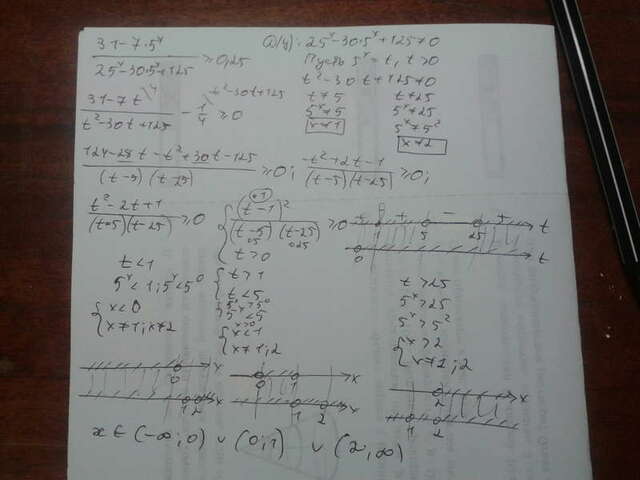 31-7·5ˣ / 25ˣ-30·5ˣ+125 ≥0,25
D(y): 25ˣ-30·5ˣ+125≠0
Пусть 5ˣ=t, t>0
t²-30t+125≠0
t≠5 t≠25
5ˣ≠5 5ˣ≠25
x≠1 5ˣ≠5²
x≠2
31-7t / t²-30t+125 - 1/4 ≥0
124-28t-t²+30t-125 / (t-5)(t-25) ≥0; -t²+2t-1 / (t-5)(t-25) ≥0;
t²-2t+1 / (t-5)(t-25) ≥0
(t-1)² / (t-5)(t-25) ≥0
t>0
1 5 25 t
0 t
t<1
5ˣ<1; 5ˣ<5⁰
x<0
x≠1; x≠2
t>1
t<5
5ˣ>5⁰
5ˣ<5
x>0
x<1
x≠1;2
t>25
5ˣ>25
5ˣ>5²
x>2
x≠1;2
0 x
1 2 x
0 1 x
1 2 x
2 x
1 2 x
x∈(-∞;0)∪(0;1) ∪ (2;∞)